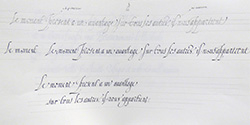 Le moment présent a un avantage sur tous les autres : il nous appartient.
Le moment Le moment présent a un avantage sur tous les autres : il nous appartient
Le moment présent a un avantage
sur tous les autres : il nous appartient